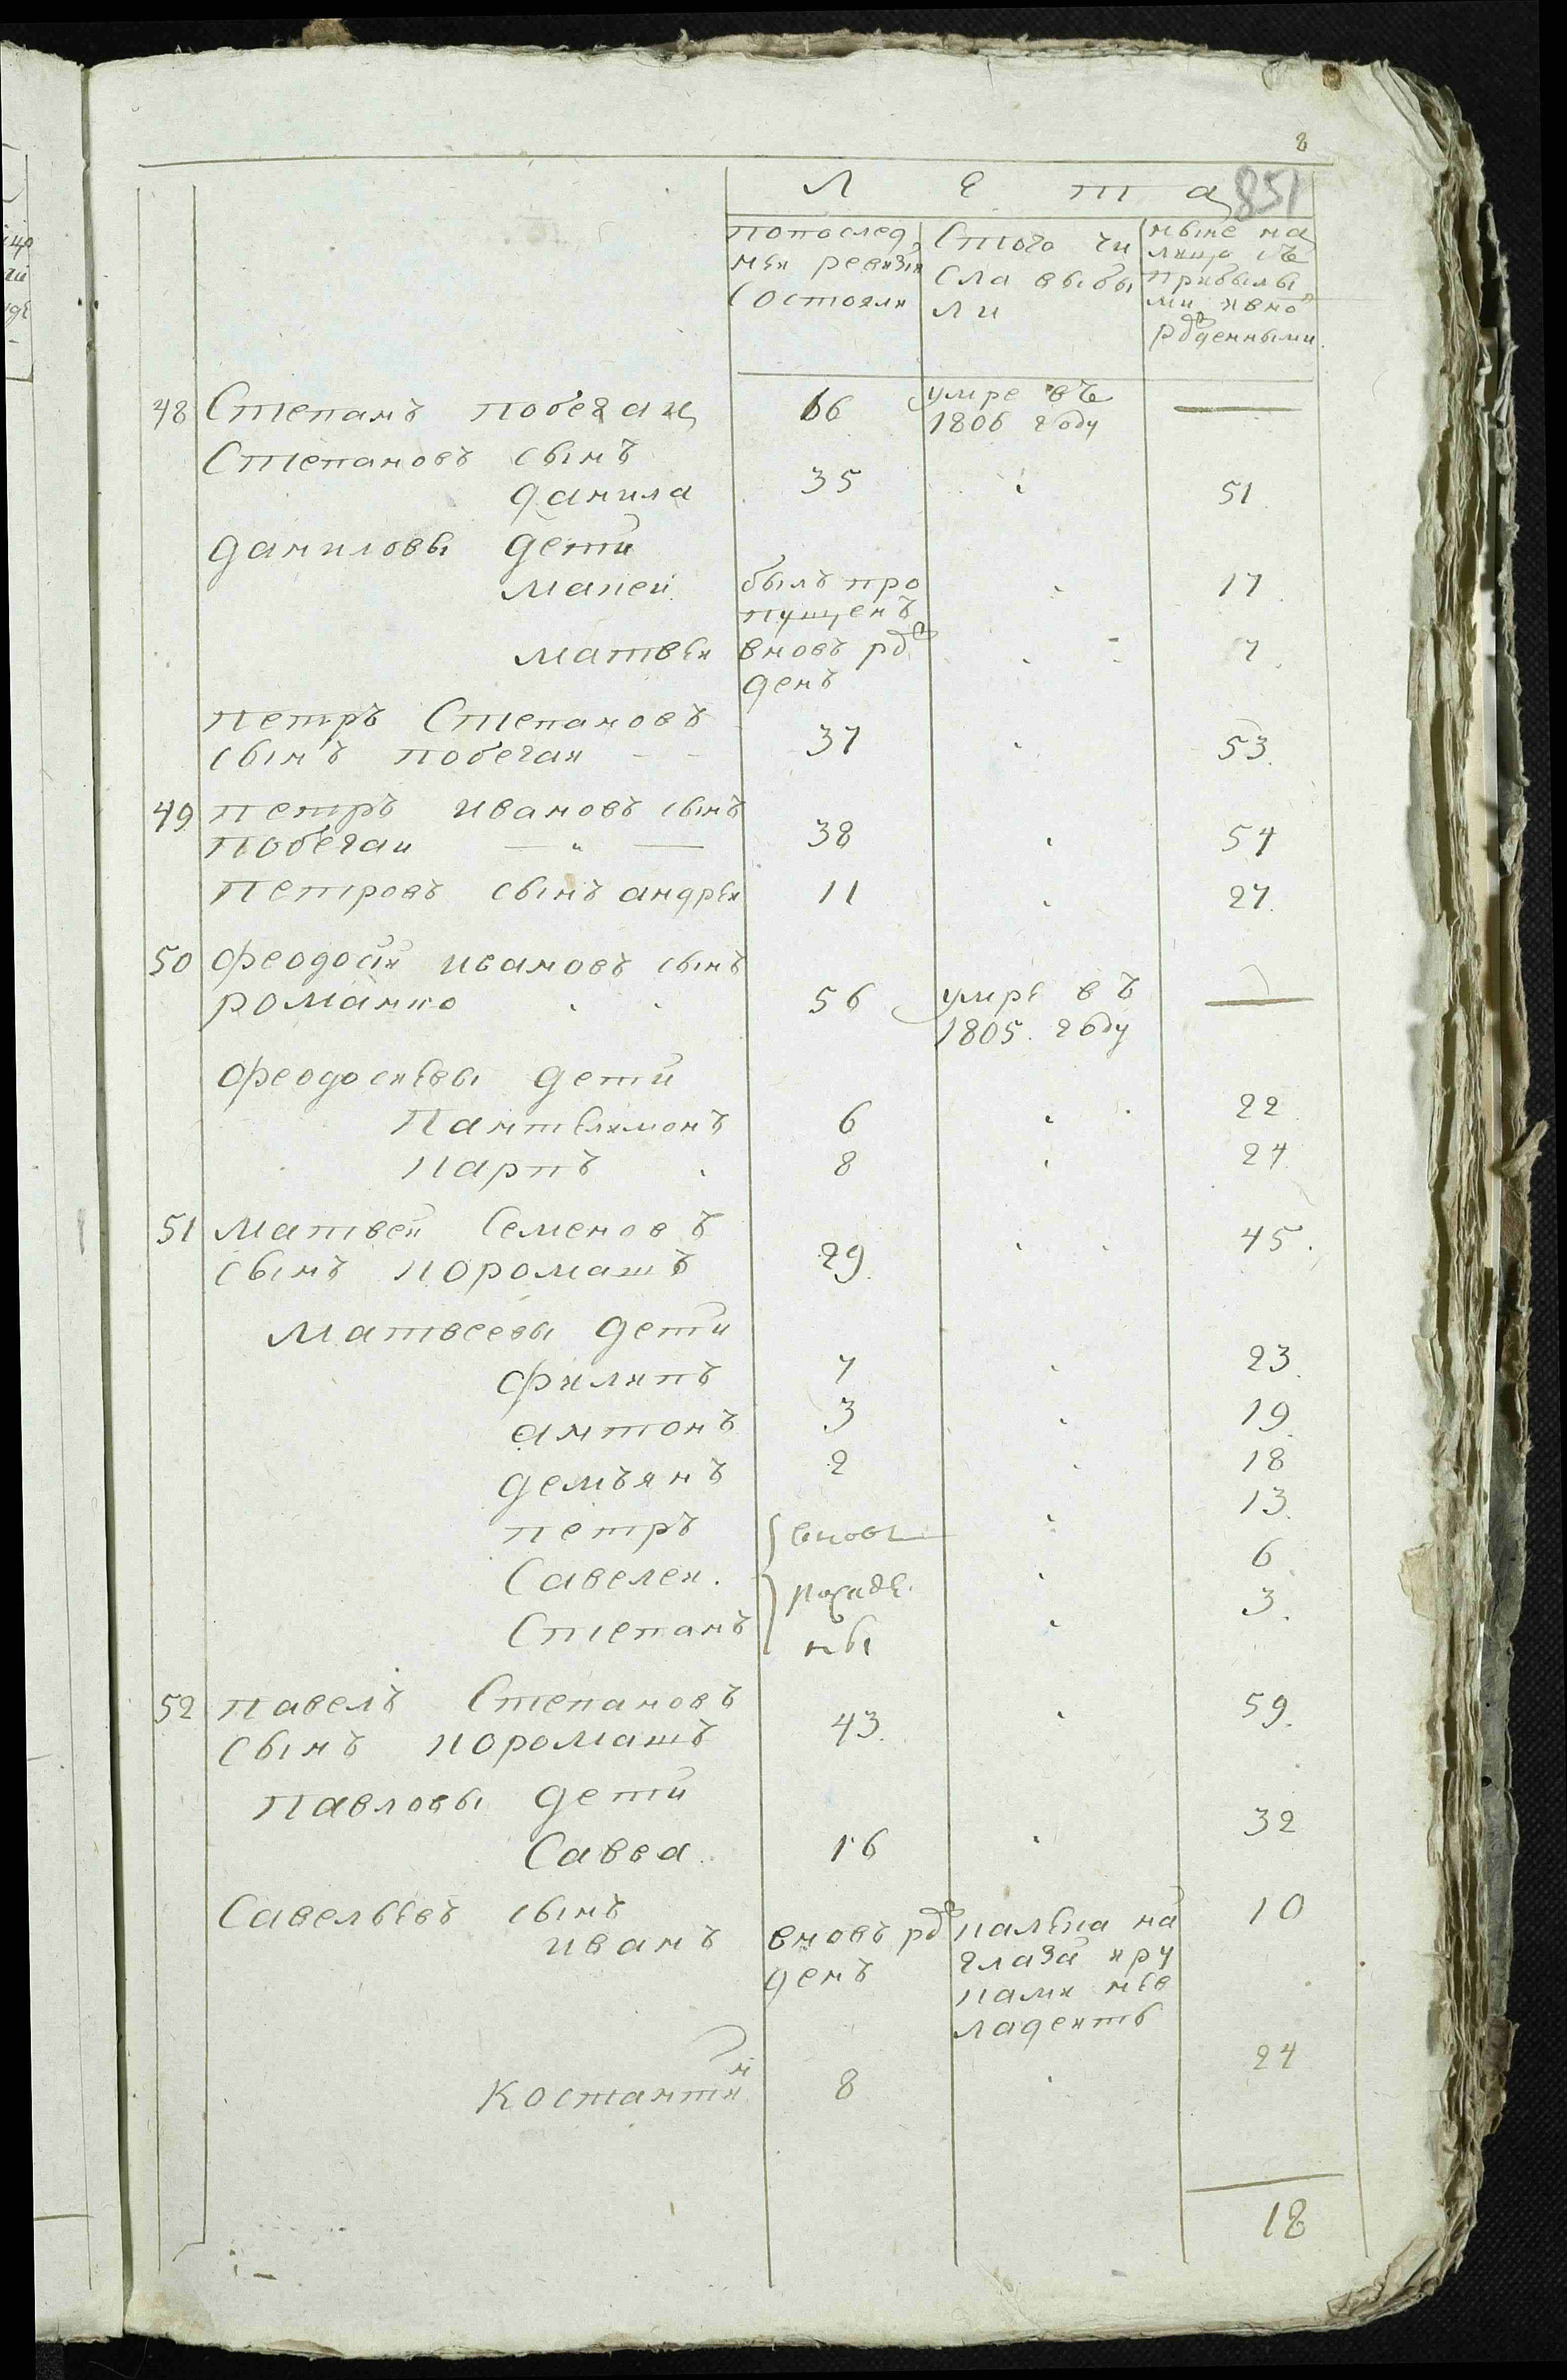 8
Л е т а
851
попослед
ней ревизи
состояли
Стого чи
сла выбы
ли
ныне на
лицо съ
прибылы
ми и вно
рдденными
48 Степанъ побегаи 66 умре въ —
1806 году
Степановъ сынъ
данила 35 51
даниловы дети
макей былъ про 17
пущенъ
матвеи вновъ рд 7
денъ
петръ Степановъ
сынъ побегаи - - 37 53
49 петръ ивановъ сынъ
побегаи — — 38 54
петровъ сынъ андреи 11 27
50 феодоси ивановъ сынъ
романко 56 умре въ —
1805 году
феодосиевы дети
Пантелимонъ 6 22
карпъ 8 24
51 матвеи Семеновъ
сынъ коромашъ 29 45
матвеевы дети
филипъ 7 23
антонъ 3 19
демъянъ 2 18
петръ вновь 13
Савелеи рожде 6
Степанъ ны 3
52 павелъ Степановъ
сынъ коромашъ 43 59
павловы дети
Савва 16 32
Савельевъ сынъ
иванъ вновъ рд 10
денъ
калека на
глаза и ру
ками нев
ладеитъ
Костантин 8 24
18